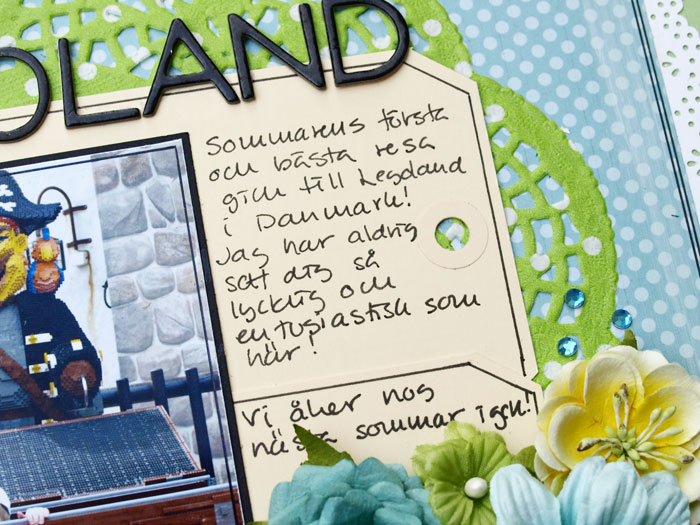 OLAND
Sommarens första
och bästa resa
gick till Legoland
i Danmark!
Jag har aldrig
sett dig så
lycklig och
entusiastisk som
här!
Vi åker nog
nästa sommar igen!